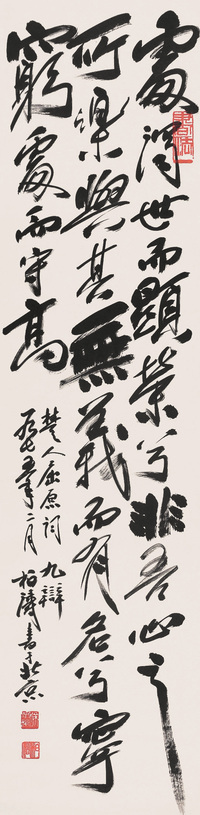 處濁世而顯榮兮非吾心之
所樂與其無義而有名兮寧
窮處而守高
楚人屈原詞 九辯
一九七五年二月 柏濤書于北京